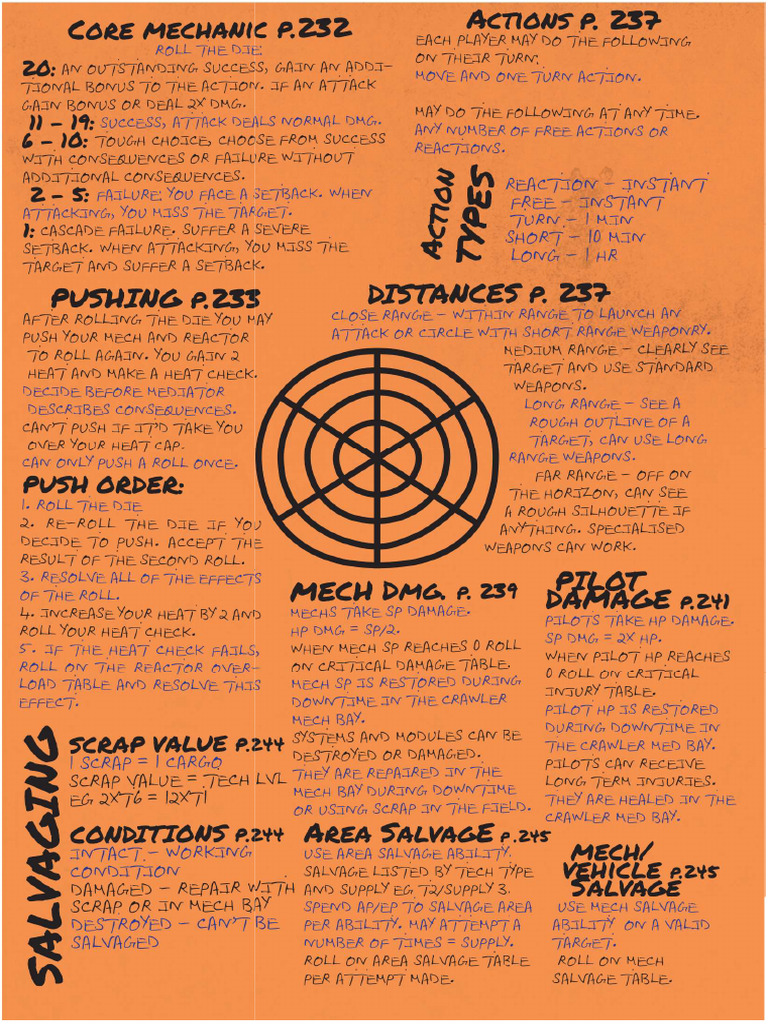 CORE MECHANIC P.232
ROLL THE DIE
20: AN OUTSTANDING SUCCESS, GAIN AN ADDI-
TIONAL BONUS TO THE ACTION. IF AN ATTACK
GAIN BONUS OR DEAL 2X DMG.
11 – 19: SUCCESS, ATTACK DEALS NORMAL DMG.
6 – 10: TOUGH CHOICE, CHOOSE FROM SUCCESS
WITH CONSEQUENCES OR FAILURE WITHOUT
ADDITIONAL CONSEQUENCES.
2 – 5: FAILURE: YOU FACE A SETBACK. WHEN
ATTACKING, YOU MISS THE TARGET.
1: CASCADE FAILURE. SUFFER A SEVERE
SETBACK. WHEN ATTACKING, YOU MISS THE
TARGET AND SUFFER A SETBACK.
ACTIONS P. 237
EACH PLAYER MAY DO THE FOLLOWING
ON THEIR TURN:
MOVE AND ONE TURN ACTION.
MAY DO THE FOLLOWING AT ANY TIME.
ANY NUMBER OF FREE ACTIONS OR
REACTIONS.
ACTION
TYPES
REACTION – INSTANT
FREE – INSTANT
TURN – 1 MIN
SHORT – 10 MIN
LONG – 1 HR
PUSHING P.233
AFTER ROLLING THE DIE YOU MAY
PUSH YOUR MECH AND REACTOR
TO ROLL AGAIN. YOU GAIN 2
HEAT AND MAKE A HEAT CHECK.
DECIDE BEFORE MEDIATOR
DESCRIBES CONSEQUENCES.
CAN'T PUSH IF IT'D TAKE YOU
OVER YOUR HEAT CAP.
CAN ONLY PUSH A ROLL ONCE.
PUSH ORDER:
1. ROLL THE DIE
2. RE-ROLL THE DIE IF YOU
DECIDE TO PUSH. ACCEPT THE
RESULT OF THE SECOND ROLL.
3. RESOLVE ALL OF THE EFFECTS
OF THE ROLL.
4. INCREASE YOUR HEAT BY 2 AND
ROLL YOUR HEAT CHECK.
5. IF THE HEAT CHECK FAILS,
ROLL ON THE REACTOR OVER-
LOAD TABLE AND RESOLVE THIS
EFFECT.
DISTANCES P. 237
CLOSE RANGE – WITHIN RANGE TO LAUNCH AN
ATTACK OR CIRCLE WITH SHORT RANGE WEAPONRY.
MEDIUM RANGE – CLEARLY SEE
TARGET AND USE STANDARD
WEAPONS.
LONG RANGE – SEE A
ROUGH OUTLINE OF A
TARGET, CAN USE LONG
RANGE WEAPONS.
FAR RANGE – OFF ON
THE HORIZON, CAN SEE
A ROUGH SILHOUETTE IF
ANYTHING. SPECIALISED
WEAPONS CAN WORK.
MECH DMG. P. 239
MECHS TAKE SP DAMAGE.
HP DMG = SP/2.
WHEN MECH SP REACHES 0 ROLL
ON CRITICAL DAMAGE TABLE.
MECH SP IS RESTORED DURING
DOWNTIME IN THE CRAWLER
MECH BAY.
SYSTEMS AND MODULES CAN BE
DESTROYED OR DAMAGED.
THEY ARE REPAIRED IN THE
MECH BAY DURING DOWNTIME
OR USING SCRAP IN THE FIELD.
PILOT
DAMAGE P.241
PILOTS TAKE HP DAMAGE.
SP DMG = 2X HP.
WHEN PILOT HP REACHES
0 ROLL ON CRITICAL
INJURY TABLE.
PILOT HP IS RESTORED
DURING DOWNTIME IN
THE CRAWLER MED BAY.
PILOTS CAN RECEIVE
LONG TERM INJURIES.
THEY ARE HEALED IN THE
CRAWLER MED BAY.
SALVAGING
SCRAP VALUE P.244
1 SCRAP = 1 CARGO
SCRAP VALUE = TECH LVL
EG 2XT6 = 12XT1
CONDITIONS P.244
INTACT – WORKING
CONDITION
DAMAGED – REPAIR WITH
SCRAP OR IN MECH BAY
DESTROYED – CAN'T BE
SALVAGED
AREA SALVAGE P.245
USE AREA SALVAGE ABILITY.
SALVAGE LISTED BY TECH TYPE
AND SUPPLY EG. T2/SUPPLY 3.
SPEND AP/EP TO SALVAGE AREA
PER ABILITY. MAY ATTEMPT A
NUMBER OF TIMES = SUPPLY.
ROLL ON AREA SALVAGE TABLE
PER ATTEMPT MADE.
MECH/
VEHICLE P.245
SALVAGE
USE MECH SALVAGE
ABILITY ON A VALID
TARGET.
ROLL ON MECH
SALVAGE TABLE.